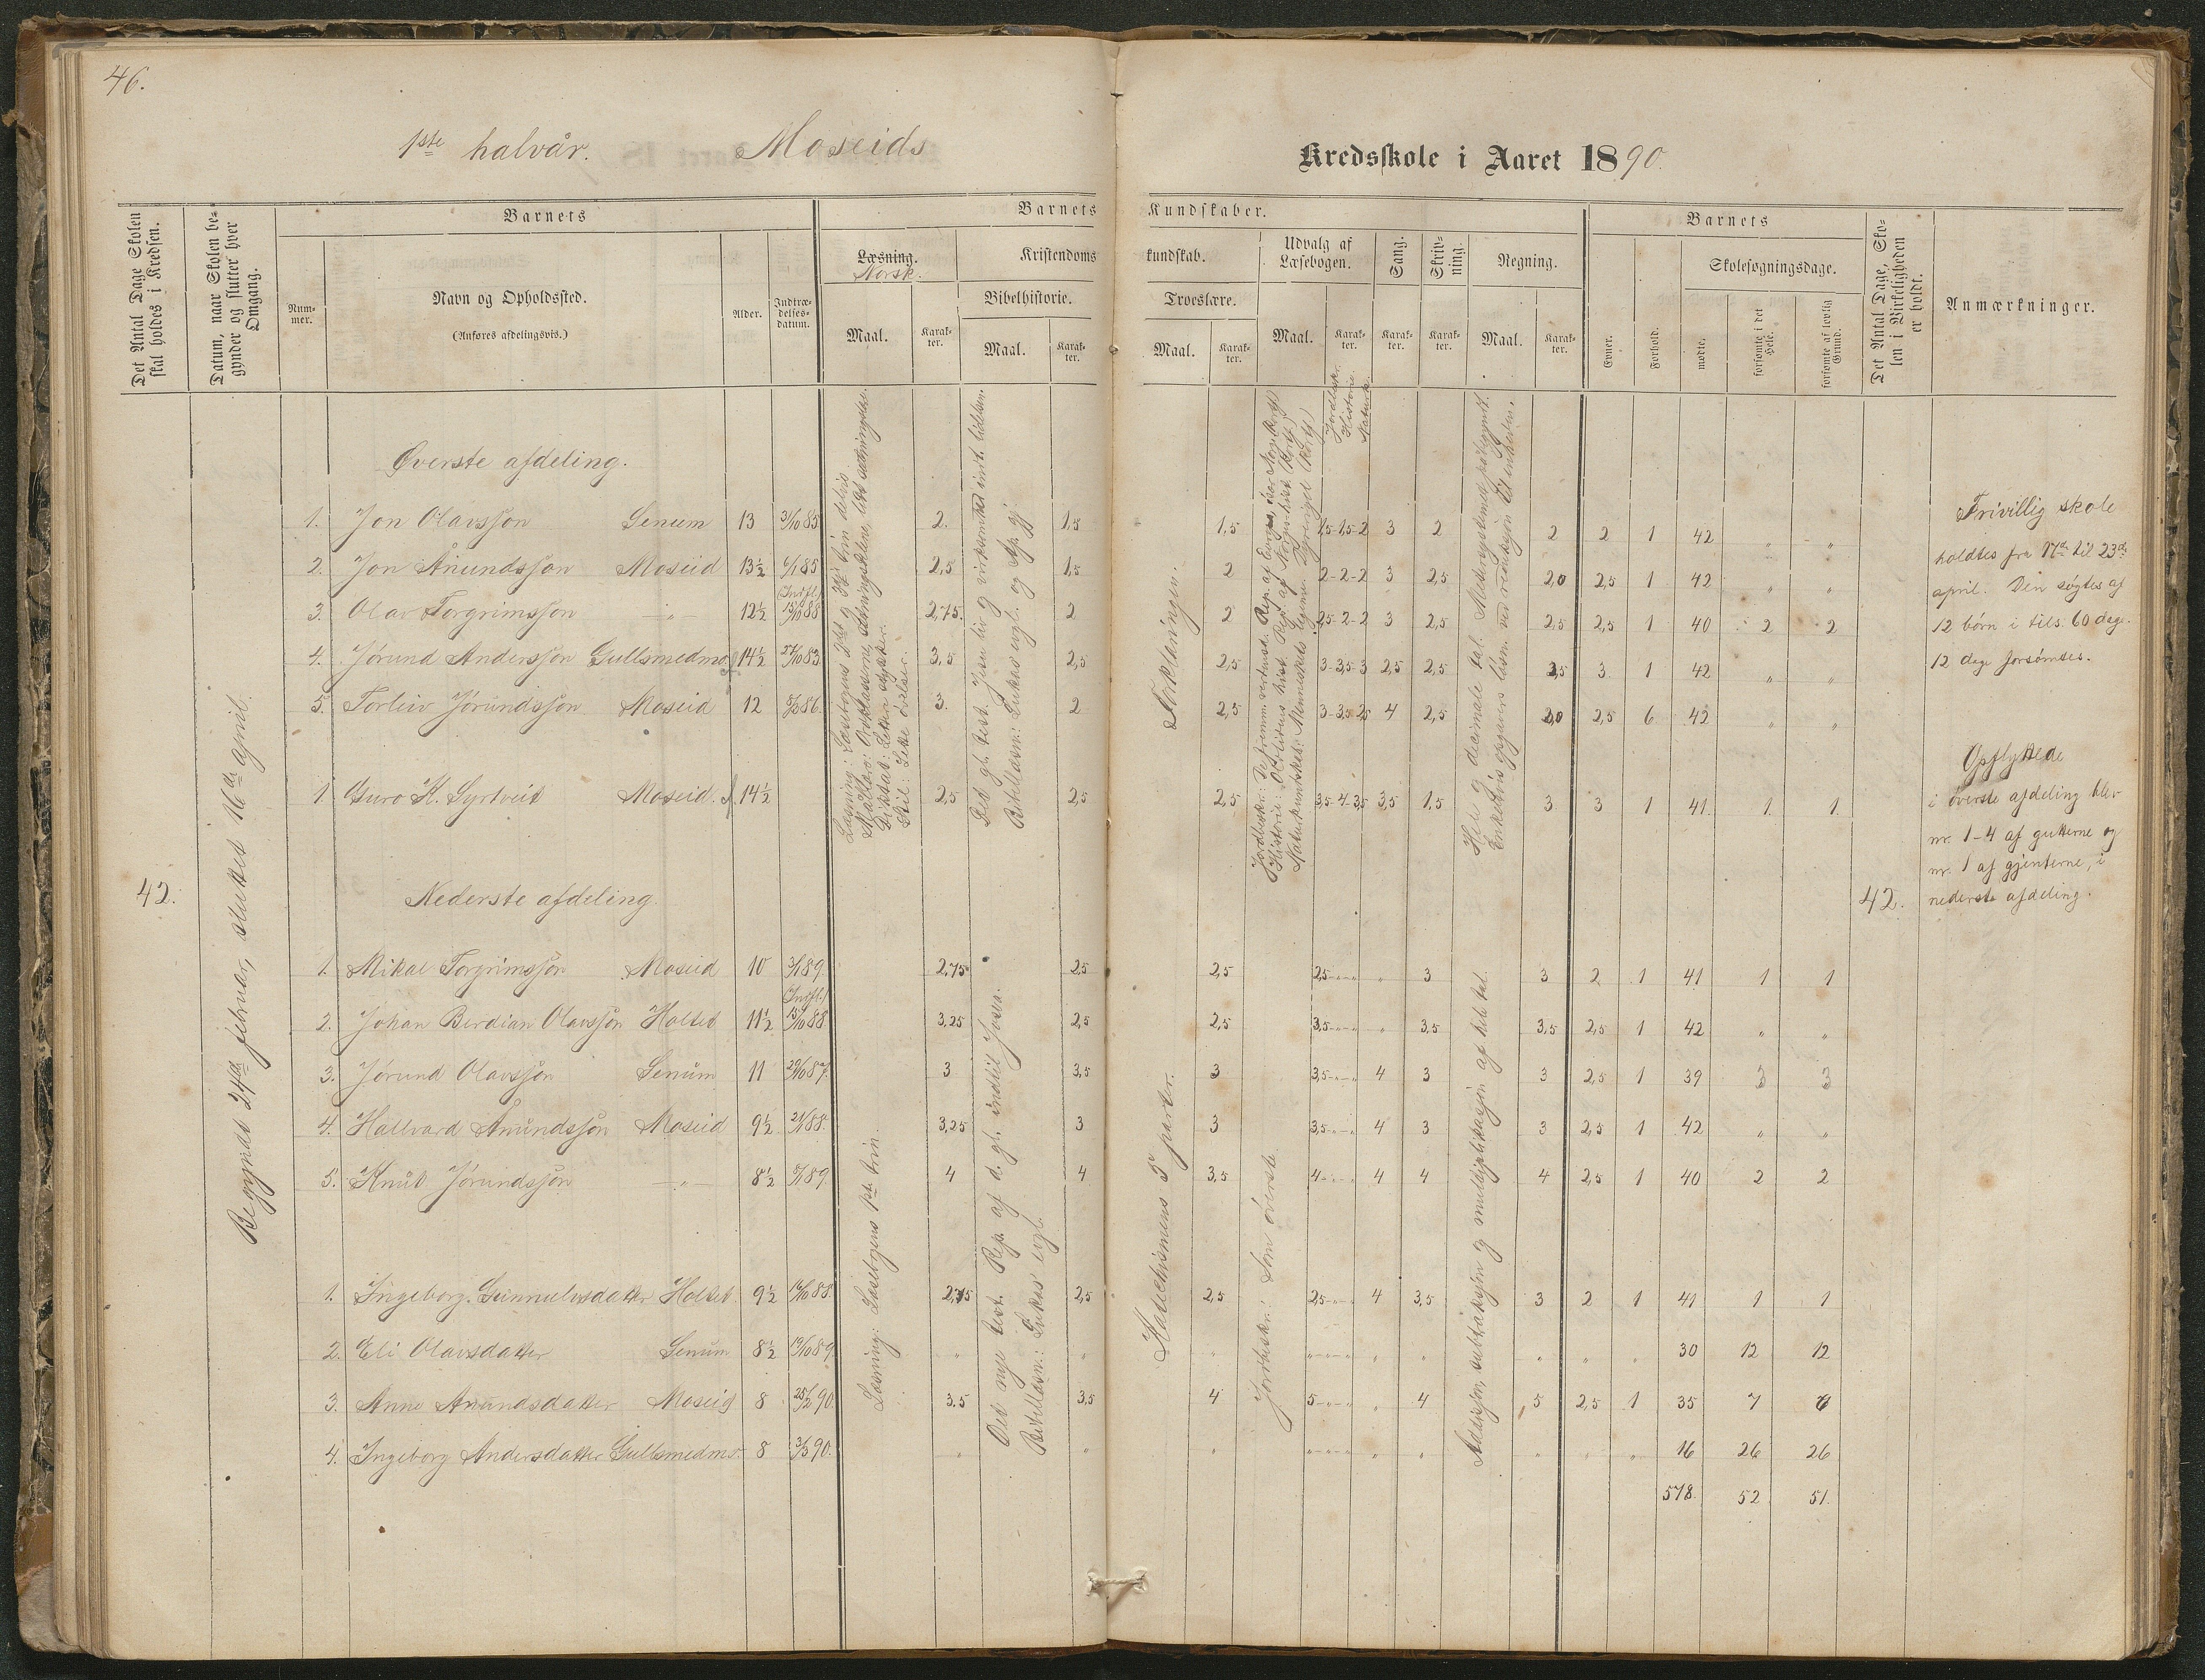 46.
1ste halvår. Moseids Kredsskole i Aaret 1890.
Det Antal Dage Skolen skal holdes i Kredsen.
Datum, naar Skolen begynder og slutter hver Omgang.
Barnets
Nummer.
Navn og Opholdssted.
(Anføres afdelingsvis.)
Alder.
Indtrædelsesdatum.
Barnets Kundskaber.
Læsning.
Norsk.
Maal.
Karakter.
Kristendomskundskab.
Bibelhistorie.
Maal.
Karakter.
Troeslære.
Maal.
Karakter.
Udvalg af Læsebogen.
Maal.
Karakter.
Sang.
Karakter.
Skrivning.
Karakter.
Regning.
Maal.
Karakter.
Barnets
Evner.
Forhold.
Skolesøgningsdage.
mødte.
forsømte i det Hele.
forsømte af lovlig Grund.
Det Antal Dage, Skolen i Virkeligheden er holdt.
Anmærkninger.
42.
Begyndt 24de februar, sluttet 16de april.
Jordbskr.
Historie.
Naturk.
Øverste afdeling.
1. Jon Olavssøn Senum 13 3/10 85 2. 1,5 1,5 1,5-1,5-2 3 2 2 2 1 42 " "
2. Jon Ånundssøn Moseid 13½ 6/1 85 2,5 1,5 2 2-2-2 3 2,5 2,0 2,5 1 42 " "
3. Olav Torgrimssøn -"- 12½ (Indfl.) 15/10 88 2,75. 2 2 2,5-2-2 3 2,5 2,5 2,5 1 40 2 2
4. Jørund Anderssøn Gullsmedmo 14½ 27/10 83 3,5 2,5 2,5 3-3,5-3 2,5 2,5 2,5 3 1 42 " "
5. Torleiv Jørundssøn Moseid 12 86. 3. 2 2,5 3-3,5-2,5 4 2,5 2,0 2,5 6 42 " "
1. Guro K. Syrtveit Moseid. 14½ 2,5 2,5 2,5 3,5-4-3,5 3,5 1,5 3 3 1 41. 1. 1.
Læsning: Læsebogens 2det og 3dje trin delvis.
Diktat: Lette stykker.
Stil: Lette øvelser.
Det gl. test. Jesu liv og virksomhet indt. lidelsen.
Bibellæsn.: Lukas evgl. og Ap. gj.
Forklaringen.
Hele og decimale tal.
Nederste afdeling.
1. Mikal Torgrimssøn Moseid 10 3/1 89. 2,75 2,5 2,5 2,5-"-" " 3 3 2 1 41 1 1
2. Johan Berdian Olavssøn Holtet 11½ (Indfl.) 15/10 88 3,25 2,5 2,5 3,5-"-" " 3,5 3,5 2,5 1 42 " "
3. Jørund Olavssøn Senum 11 20/10 87. 3 3,5 3 3,5-"-" 4 3 3 2,5 1 39 3 3
4. Hallvard Ånundssøn Moseid 9½ 21/1 88. 3,25 3 3 3,5-"-" 4 3 3 2,5 1 42 " "
5. Knut Jørundssøn -"- 8½ 89. 4 4 3,5 4-"-" 4 4 4 2,5 1 40 2 2
1. Ingeborg Gunnulvsdatter Holtet 9½ 16/10 88. 2,75 2,5 2,5 2,5-"-" 4 3,5 3 2 1 41 1 1
2. Eli Olavsdatter Senum 8½ 19/10 89. " " " "-"-" " " " " " 30 12 12
3. Anne Ånundsdatter Moseid 8 25/2 90. 3,5 3,5 4 5-"-" " 4 5 2,5 1 35 7 6
4. Ingeborg Andersdatter Gullsmedmo. 8 3/3 90. " " " "-"-" " " " " " 16 26 26
578. 52 51.
Læsning: Læsebogens 1ste trin.
Det nye test. Rep. af d. gl. indtil Josva.
Bibellæsn.: Lukas' evgl.
Katechismens 5 parter.
Jordbeskr.: Som øverste.
Addisjon, subtraksjon og multiplikasjon af hele tal.
42.
Frivillig skole
holdtes fra 17de til 23de
april. Den søgtes af
12 børn i tils. 60 dage.
12 dage forsømtes.
Opflyttede
i øverste afdeling blev
nr. 1-4 af gutterne og
nr. 1 af gjenterne, i
nederste afdeling.